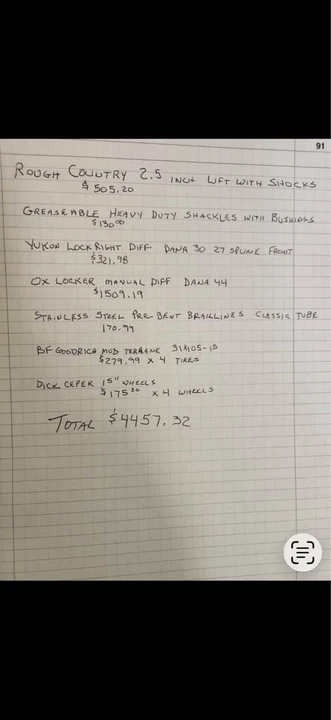 91
ROUGH COUNTRY 2.5 INCH LIFT WITH SHOCKS
$505.20
GREASEABLE HEAVY DUTY SHACKLES WITH BUSHINGS
$130.00
YUKON LOCKRIGHT DIFF DANA 30 27 SPLINE FRONT
$321.98
OX LOCKER MANUAL DIFF DANA 44
$1509.19
STAINLESS STEEL PRE BENT BRAKLINES CLASSIC TUBE
170.99
BF GOODRICH MUD TERRANE 31X105-15
$279.99 X 4 TIRES
DICK CEPEK 15" WHEELS
$175.00 X 4 WHEELS
TOTAL $4457.32